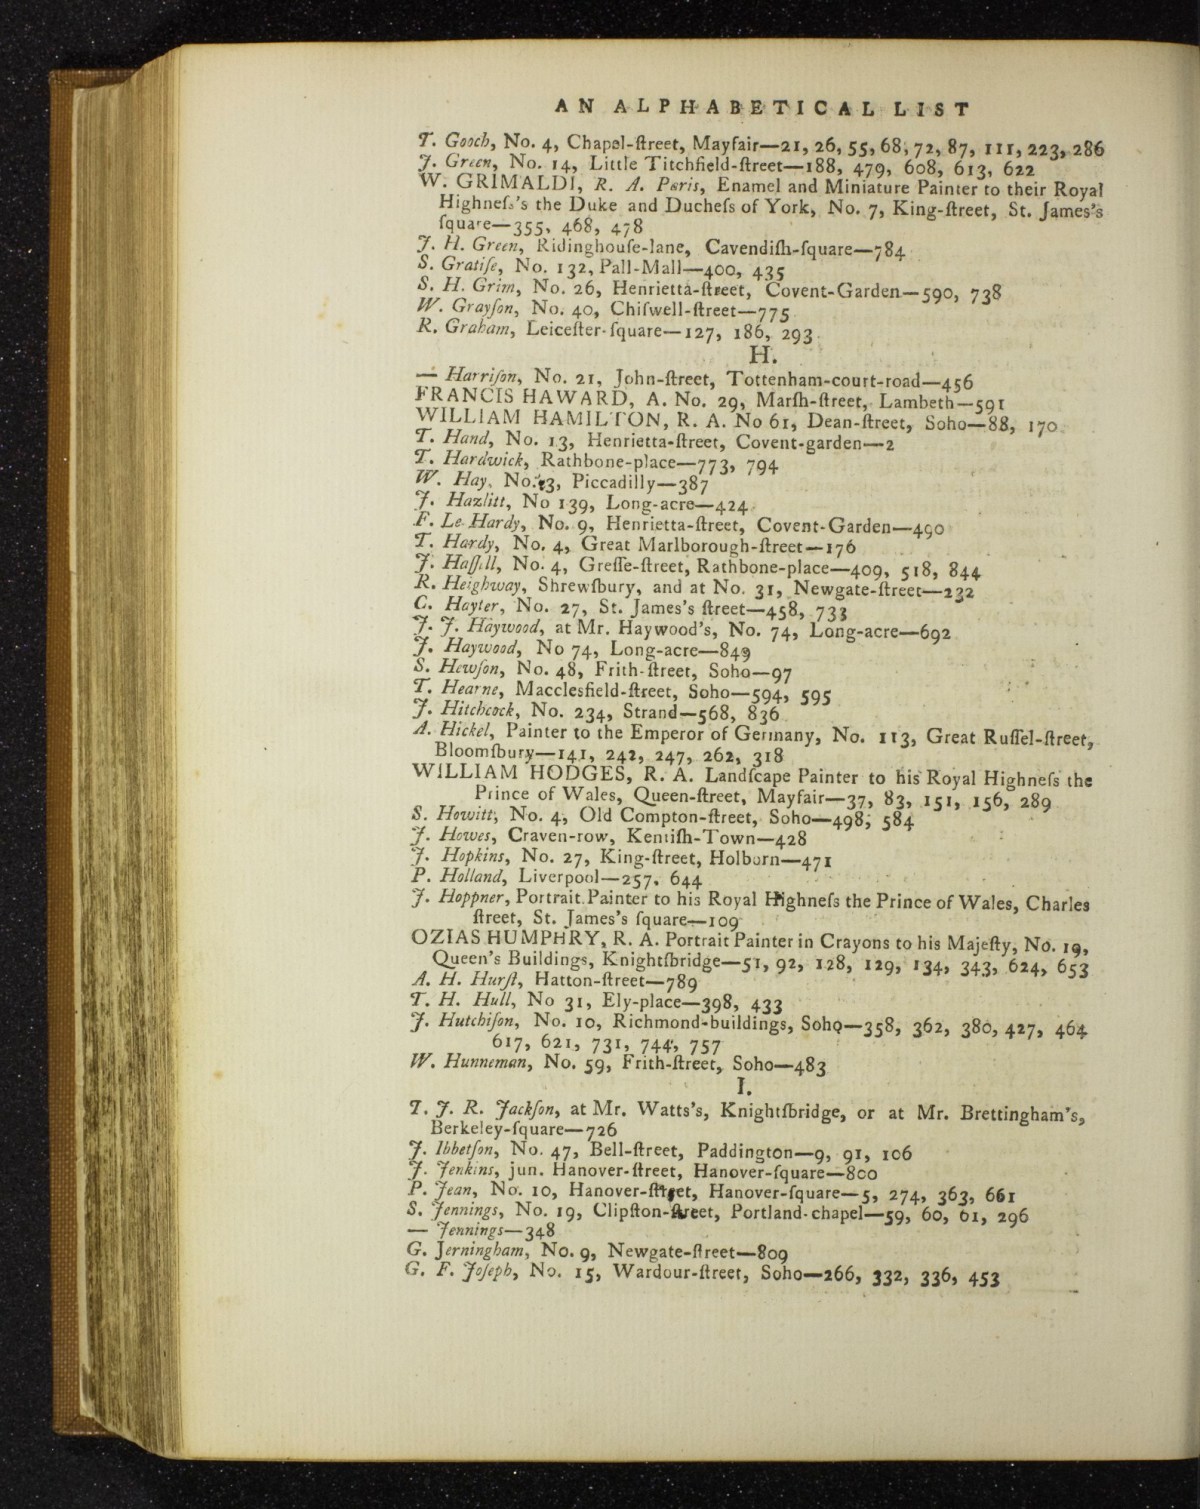 AN ALPHABETICAL LIST
T. Gooch, No. 4, Chapel-ſtreet, Mayfair—21, 26, 55, 68, 72, 87, 111, 223, 286
J. Green, No. 14, Little Titchfield-ſtreet—188, 479, 608, 613, 622
W. GRIMALDI, R. A. Paris, Enamel and Miniature Painter to their Royal
Highneſs's the Duke and Ducheſs of York, No. 7, King-ſtreet, St. James's
ſquare—355, 468, 478
J. H. Green, Ridinghouſe-lane, Cavendiſh-ſquare—784
S. Gratiſe, No. 132, Pall-Mall—400, 435
S. H. Grim, No. 26, Henrietta-ſtreet, Covent-Garden—590, 738
W. Grayſon, No. 40, Chiſwell-ſtreet—775
R. Graham, Leiceſter-ſquare—127, 186, 293
H.
— Harriſon, No. 21, John-ſtreet, Tottenham-court-road—456
FRANCIS HAWARD, A. No. 29, Marſh-ſtreet, Lambeth—591
WILLIAM HAMILTON, R. A. No 61, Dean-ſtreet, Soho—88, 170
T. Hand, No. 13, Henrietta-ſtreet, Covent-garden—2
T. Hardwick, Rathbone-place—773, 794
W. Hay, No. 13, Piccadilly—387
J. Hazlitt, No 139, Long-acre—424
F. Le Hardy, No. 9, Henrietta-ſtreet, Covent-Garden—490
T. Hardy, No. 4, Great Marlborough-ſtreet—176
J. Haſſell, No. 4, Greſſe-ſtreet, Rathbone-place—409, 518, 844
R. Heighway, Shrewſbury, and at No. 31, Newgate-ſtreet—232
C. Hayter, No. 27, St. James's ſtreet—458, 733
J. J. Haywood, at Mr. Haywood's, No. 74, Long-acre—692
J. Haywood, No 74, Long-acre—849
S. Hewſon, No. 48, Frith-ſtreet, Soho—97
T. Hearne, Macclesfield-ſtreet, Soho—594, 595
J. Hitchcock, No. 234, Strand—568, 836
A. Hickel, Painter to the Emperor of Germany, No. 113, Great Ruſſel-ſtreet,
Bloomſbury—141, 242, 247, 262, 318
WILLIAM HODGES, R. A. Landſcape Painter to his Royal Highneſs the
Prince of Wales, Queen-ſtreet, Mayfair—37, 83, 151, 156, 289
S. Howitt, No. 4, Old Compton-ſtreet, Soho—498, 584
J. Howes, Craven-row, Kentiſh-Town—428
J. Hopkins, No. 27, King-ſtreet, Holborn—471
P. Holland, Liverpool—257, 644
J. Hoppner, Portrait Painter to his Royal Highneſs the Prince of Wales, Charles
ſtreet, St. James's ſquare—109
OZIAS HUMPHRY, R. A. Portrait Painter in Crayons to his Majeſty, No. 19,
Queen's Buildings, Knightſbridge—51, 92, 128, 129, 134, 343, 624, 653
A. H. Hurſt, Hatton-ſtreet—789
T. H. Hull, No 31, Ely-place—398, 433
J. Hutchiſon, No. 10, Richmond-buildings, Soho—358, 362, 380, 427, 464
617, 621, 731, 744, 757
W. Hunneman, No. 59, Frith-ſtreet, Soho—483
I.
T. J. R. Jackſon, at Mr. Watts's, Knightſbridge, or at Mr. Brettingham's,
Berkeley-ſquare—726
J. Ibbetſon, No. 47, Bell-ſtreet, Paddington—9, 91, 106
J. Jenkins, jun. Hanover-ſtreet, Hanover-ſquare—800
P. Jean, No. 10, Hanover-ſtreet, Hanover-ſquare—5, 274, 363, 661
S. Jennings, No. 19, Clipſton-ſtreet, Portland-chapel—59, 60, 61, 296
— Jennings—348
G. Jerningham, No. 9, Newgate-ſtreet—809
G. F. Joſeph, No. 15, Wardour-ſtreet, Soho—266, 332, 336, 453